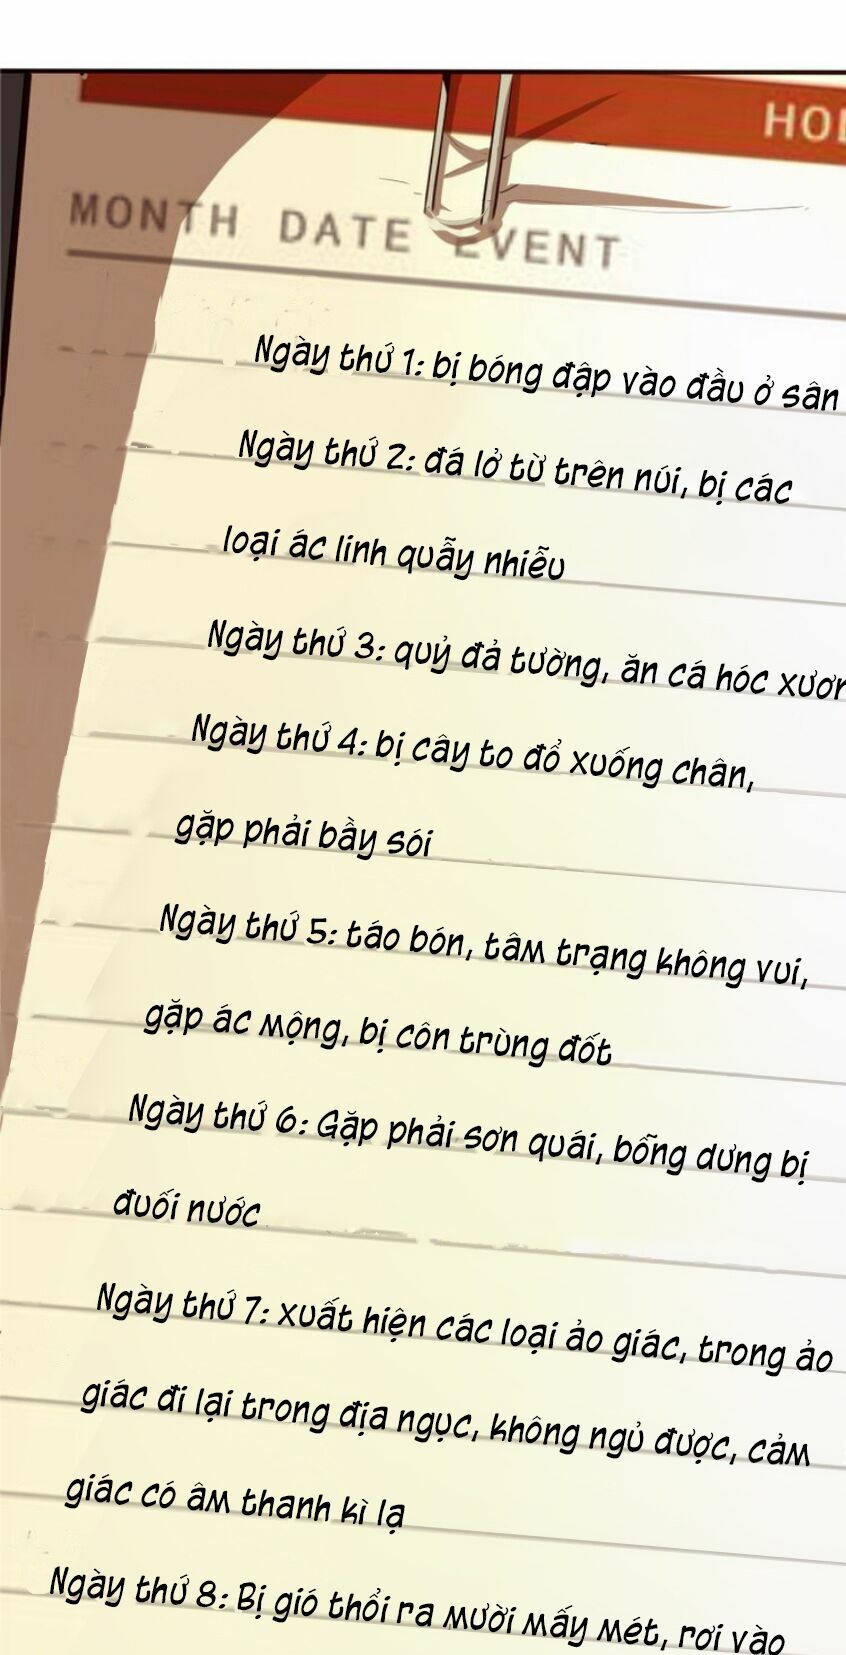 HOL
MONTH DATE EVENT
Ngày thứ 1: bị bóng đập vào đầu ở sân
Ngày thứ 2: đá lở từ trên núi, bị các
loại ác linh quẫy nhiễu
Ngày thứ 3: quỷ đả tường, ăn cá hóc xươn
Ngày thứ 4: bị cây to đổ xuống chân,
gặp phải bầy sói
Ngày thứ 5: táo bón, tâm trạng không vui,
gặp ác mộng, bị côn trùng đốt
Ngày thứ 6: Gặp phải sơn quái, bỗng dưng bị
đuối nước
Ngày thứ 7: xuất hiện các loại ảo giác, trong ảo
giác đi lại trong địa ngục, không ngủ được, cảm
giác có âm thanh kì lạ
Ngày thứ 8: Bị gió thổi ra mười mấy mét, rơi vào